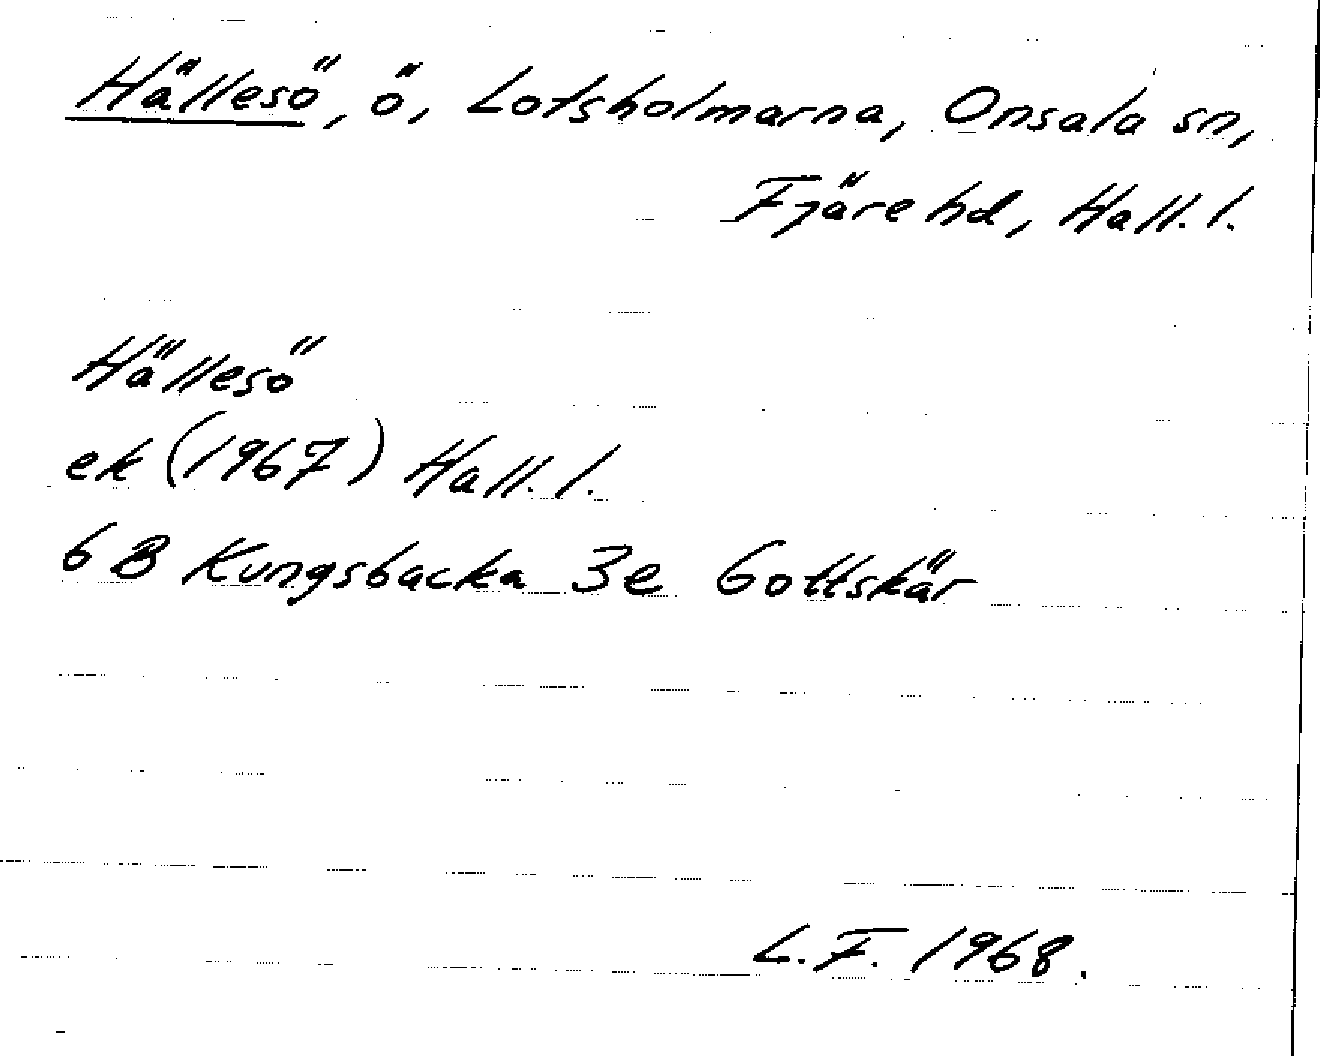 Hällesö, ö, Lotsholmarna, Onsala sn,
Fjäre hd, Hall. l.
Hällesö
ek (1967) Hall. l.
6 B Kungsbacka 3e Gottskär
L. F. 1968.